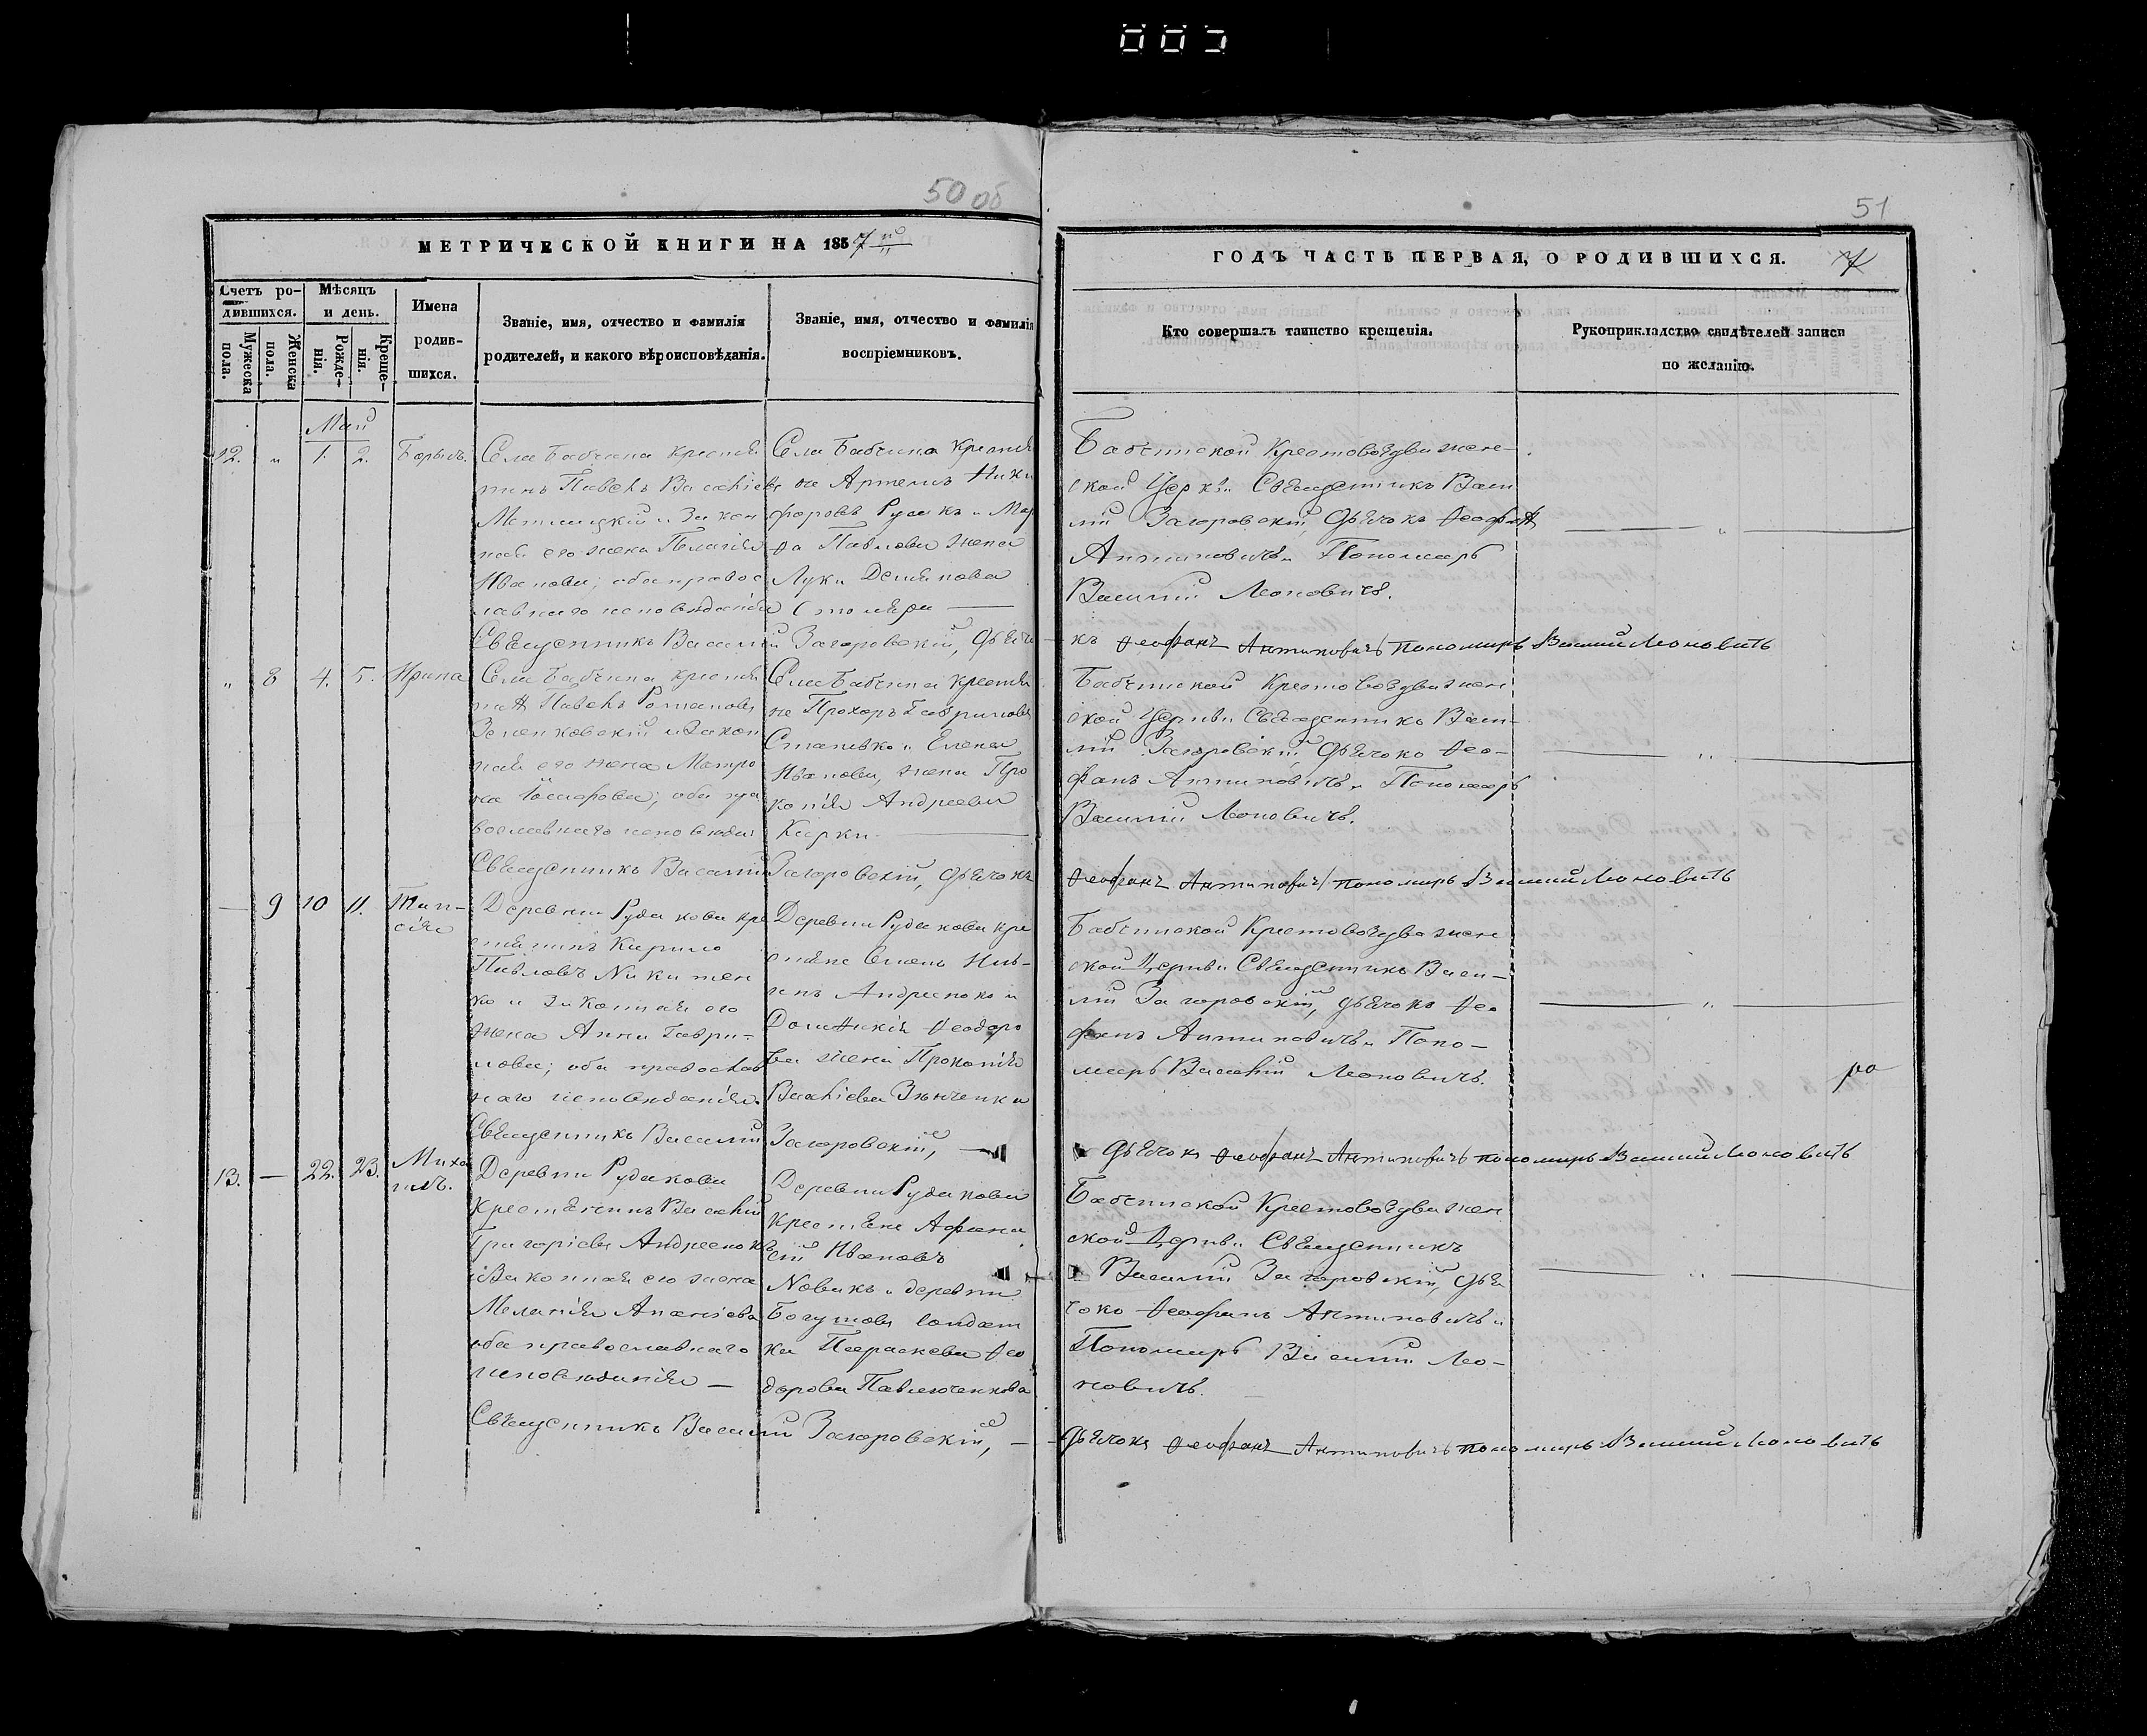 003
50 об
51
МЕТРИЧЕСКОЙ КНИГИ НА 1857 й
ГОДЪ ЧАСТЬ ПЕРВАЯ, О РОДИВШИХСЯ.
7
Счетъ ро-
дившихся.
Мужеска
пола.
Женска
пола.
Мѣсяцъ
и день.
Рожде-
нія.
Креще-
нія.
Имена
родив-
шихся.
Званіе, имя, отчество и фамилія
родителей, и какого вѣроисповѣданія.
Званіе, имя, отчество и фамилія
воспріемниковъ.
Кто совершалъ таинство крещенія.
Рукоприкладство свидѣтелей записи
по желанію.
Май
12. " 1. 2. Борисъ.
Села Бабчина крестья
нинъ Павелъ Василіевъ
и Закон
ная его жена Пелагія
Иванова; оба правос
лавнаго исповѣданія
Села Бабчина крестья
не Артемъ Ники
форовъ Русакъ и Мар
ѳа Павлова жена
Луки Демянова
Столяра
Бабчинской Крестовоздвижен-
ской Церкви Священникъ Васи
лій Загоровскій, Дьячокъ Ѳеофан
Антиповичъ и Пономарь
Василій Леоновичъ.
Священникъ Василій Загоровскій, Дьячо
къ Ѳеофанъ Антиповичъ Пономарь Василий Леоновичъ
" 8 4. 5. Ирина
Села Бабчина крестья
нин Павелъ Романовъ
Зеленковскій и Закон
ная его жена Матро
на Іосифова; оба пра
вославнаго исповѣдан
Села Бабчина крестья
не Прохоръ Гавриловъ
и Елена
Иванова, жена Про
копія Андреева
Кирки
Бабчинской Крестовоздвижен
ской Церкви Священникъ Васи-
лій Загоровскій, Дьячокъ Ѳео-
фанъ Антиповичъ и Пономарь
Василій Леоновичъ.
Священникъ Василій Загоровскій, Дьячокъ
Ѳеофанъ Антиповичъ Пономарь Василий Леоновичъ
— 9 10 11. Таи-
сія
Деревни Рудакова кре
стянинъ Кирило
Павловъ Никитен
ко и Законная его
жена Анна Гаври-
лова; оба православ
наго исповѣданія.
Деревни Рудакова кре
стяне Семенъ
Андреенко и
Ѳеодоро
ва жена Прокопія
Василіева Зинченка
Бабчинской Крестовоздвижен
ской Церкви Священникъ Васи-
лій Загоровскій, дьячокъ Ѳео
фанъ Антиповичъ и Поно-
марь Василій Леоновичъ.
Священникъ Василій Загоровскій,
Дьячокъ Ѳеофанъ Антиповичъ пономарь Василий Леоновичъ
13. — 22. 23. Миха
илъ.
Деревни Рудакова
Крестянинъ Василій
Григоріевъ Андреенко
и Законная его жена
Меланія
оба православнаго
исповѣданія —
Деревни Рудакова
Крестяне Афана
сій Ивановъ
Новикъ и деревни
Богушова солдат
ка Параскева Ѳео
дорова Павлюченкова
Бабчинской Крестовоздвижен
ской Церкви Священникъ
Василій Загоровскій, Дья
чокъ Ѳеофанъ Антиповичъ и
Пономарь Василій Лео-
новичъ.
Священникъ Василій Загоровскій, —
Дьячокъ Ѳеофанъ Антиповичъ пономарь Василий Леоновичъ